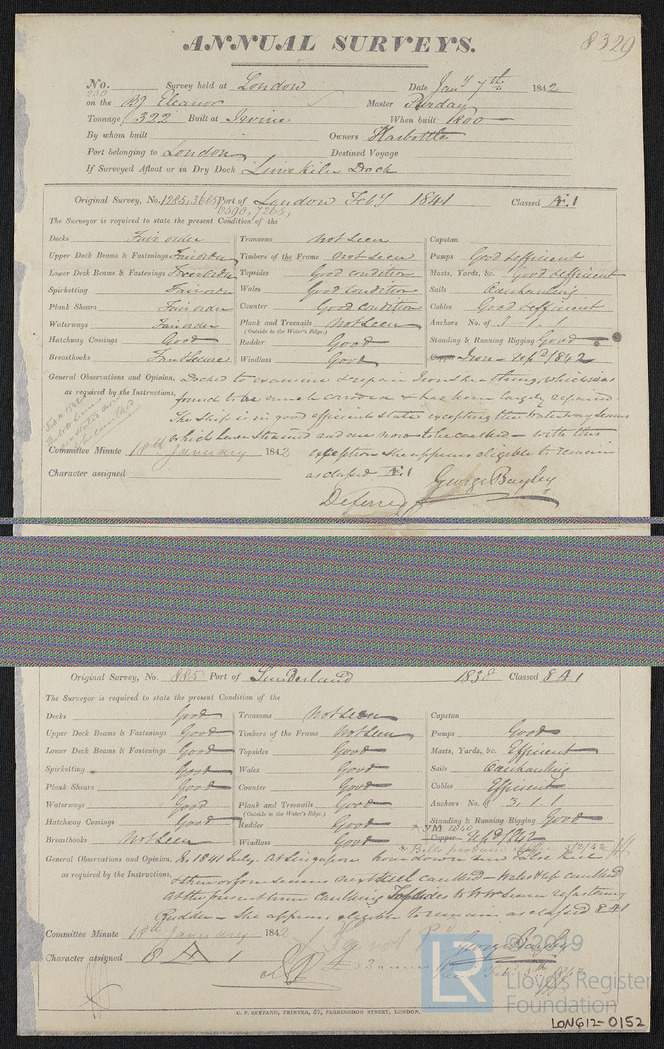 ANNUAL SURVEYS.
8329
No. 250 Survey held at London Date Jany 7th 1842
on the Bg Eleanor Master Purday
Tonnage 322 Built at Irvine When built 1800
By whom built Owners Harbottle
Port belonging to London Destined Voyage
If Surveyed Afloat or in Dry Dock Limekiln Dock
Original Survey, No. 1285, 3665 Port of London Feby 1841 Classed Æ.1
6590, 7265,
The Surveyor is required to state the present Condition of the
Decks Fair order Transoms Not Seen Capstan
Upper Deck Beams & Fastenings Fair order Timbers of the Frame Not Seen Pumps Good & efficient
Lower Deck Beams & Fastenings Topsides Good condition Masts, Yards, &c. Good & efficient
Spirketting Fair order Wales Good condition Sails Overhauling
Plank Shears Fair order Counter Good condition Cables Good & efficient
Waterways Fair order Plank and Treenails Not Seen Anchors No. of 3. 1. 1
(Outside in the Water's Edge.)
Hatchway Comings Good Rudder Good Standing & Running Rigging Good
Breasthooks Windlass Good Copper Iron - repd 1842
General Observations and Opinion, Docked to examine & repair Iron Sheathing, which was
as required by the Instructions, found to be much corroded & has been largely repaired
The Ship is in good efficient state excepting the Waterway Seams
which have strained and are now to be caulked - with this
Committee Minute 18th January 1842 exception She appears eligible to remain
Character assigned as classed Æ.1 George Bayley
Deferred
Original Survey, No. 885 Port of Sunderland 1838 Classed 8 A 1
The Surveyor is required to state the present Condition of the
Decks Good Transoms Not Seen Capstan
Upper Deck Beams & Fastenings Good Timbers of the Frame Not Seen Pumps Good
Lower Deck Beams & Fastenings Good Topsides Good Masts, Yards, &c. Efficient
Spirketting Good Wales Good Sails Overhauling
Plank Shears Good Counter Good Cables Efficient
Waterways Good Plank and Treenails Good Anchors No. of 3. 1. 1
(Outside in the Water's Edge.)
Hatchway Comings Good Rudder Good Standing & Running Rigging Good
Breasthooks Not Seen Windlass Good Copper repd 1842
General Observations and Opinion, In 1841 July. At Singapore hove down new False Keel
as required by the Instructions, caulked - Wales & up caulked
At the present time Caulking Topsides to Ww Seam refastening
Rudder - She appears eligible to remain as classed 8 A 1
Committee Minute 18th January 1842
Character assigned 8 A 1 George Bayley
C. F. SEYFANG, PRINTER, 57, FARRINGDON STREET, LONDON.
© 2019
LR
Lloyd's Register
Foundation
LON612-0152